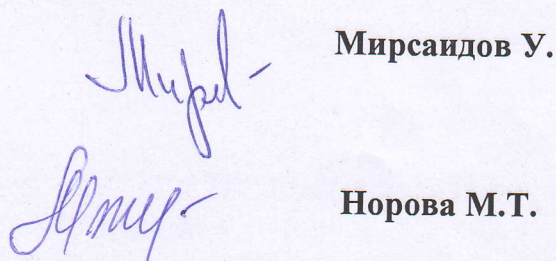 Мирсаидов У.
Норова М.Т.